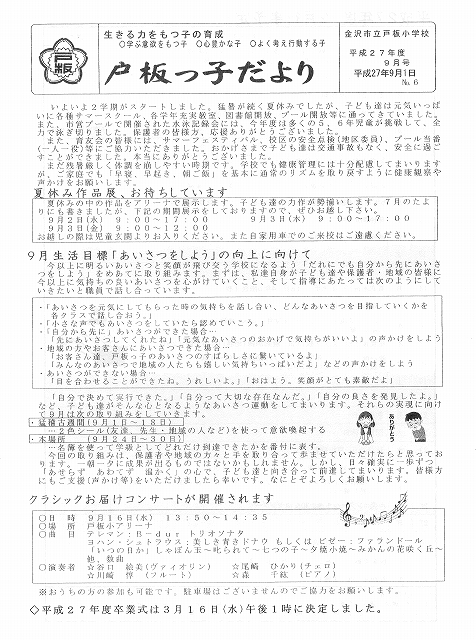 生きる力をもつ子の育成
○学ぶ意欲をもつ子 ○心豊かな子 ○よく考え行動する子
戸板
戸板っ子だより
金沢市立戸板小学校
平成27年度
9月号
平成27年9月1日
№6
いよいよ2学期がスタートしました。猛暑が続く夏休みでしたが、子ども達は元気いっぱ
いに各種サマースクール、各学年充実教室、図書館開放、プール開放等に通ってきていました。
また、市営プールで開催された水泳記録会には、今年度は多くの5、6年児童が挑戦して、全
力で泳ぎ切りました。保護者の皆様方、応援ありがとうございました。
また、育友会の皆様には、サマーフェスティバル、校区の安全点検(地区委員)、プール当番
(一人一役)等にご協力いただきました。おかげさまで子ども達は交通事故もなく、安全に過ご
すことができました。本当にありがとうございました。
まだ残暑厳しく体調を崩しやすい時期です。学校でも健康管理には十分配慮してまいります
が、ご家庭でも「早寝、早起き、朝ご飯」を基本に通常のリズムを取り戻すように健康観察や
声かけをお願いします。
夏休み作品展、お待ちしています
夏休み中の作品をアリーナで展示します。子ども達の力作が勢揃いします。7月のたよ
りにも書きましたが、下記の期間展示をしておりますので、ぜひお越し下さい。
9月2日(水) 9:00~17:00 9月3日(木) 9:00~17:00
9月3日(金) 9:00~12:00
お越しの際は児童玄関よりお入りください。また自家用車でのご来校はご遠慮ください。
9月生活目標「あいさつをしよう」の向上に向けて
今以上に明るいあいさつと笑顔が飛び交う学校になるよう「だれにでも自分から先にあいさ
つをしよう」をめあてに取り組みます。まずは、私達自身が子ども達や保護者・地域の皆様に
今以上に気持ちの良いあいさつを心がけていくこと、そして指導にあたっては次のようにして
いきたいと職員で話し合っています。
・「あいさつを元気にしてもらった時の気持ちを話し合い、どんなあいさつを目指していくかを
各クラスで話し合おう。」
・「小さな声でもあいさつをしていたら認めていこう。」
・「自分から先に」あいさつができた場合…
「先にあいさつしてくれたね」「元気なあいさつのおかげで気持ちがいいよ」の声かけをしよう
・地域の方やお客さんにあいさつできた場合…
「お客さん達、戸板っ子のあいさつのすばらしさに驚いているよ」
「みんなのあいさつで地域の人たちも嬉しい気持ちいっぱいだよ」などの声かけをしよう
・あいさつができない場合…
「目を合わせることができたね。うれしいよ。」「おはよう。笑顔がとても素敵だよ」
「自分で決めて実行できた。」「自分って大切な存在なんだ。」「自分の良さを発見したよ。」
など、子ども達がそんな心となるようなあいさつ運動をしてまいります。それらの実現に向け
て9月は次の取り組みをしていきます。
・猛稽古週間(9月10~18日)
…2色シール(友達、先生・地域の人など)を使って意欲喚起する
・本場所 (9月24日~30日)
…名簿を使って学級としてどれだけ到達できたかを番付に表す。
ありがとう
今回の取り組みは、保護者や地域の方々と手を取り合って歩ませていただけたらと思ってお
ります。一朝一夕に成果が出るものではないかもしれません。しかし、日々確実に一歩ずつ、
「あせらず あわてず 温かく」の心で、子ども達と向き合って前進してまいります。皆様方
にもご支援(声かけ等)をいただけましたら幸いです。なにとぞよろしくお願いします。
クラシックお届けコンサートが開催されます
○日 時 9月16日(水) 13:50~14:35
○場 所 戸板小アリーナ
○曲 目 テレマン:B-dur トリオソナタ
ヨハン・シュトラウス:美しき青きドナウ もしくは ビゼー:ファランドール
「いつの日か」しゃぼん玉~叱られて~七つの子~夕焼小焼~みかんの花咲く丘~
他、数曲
○演奏者 ☆谷口 絵美(ヴァィオリン) ☆尾﨑 ひかり(チェロ)
☆川崎 惇 (フルート) ☆森 千紘 (ピアノ)
※おうちの方の参加も可能です、駐車場はございませんのでご協力をお願いします。
◇平成27年度卒業式は3月16日(水)午後1時に決定しました。